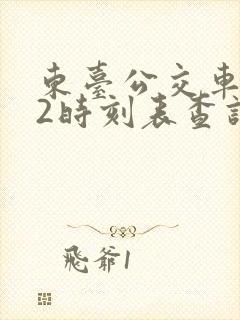 東臺公交車
2時刻表查詢
飛爺1